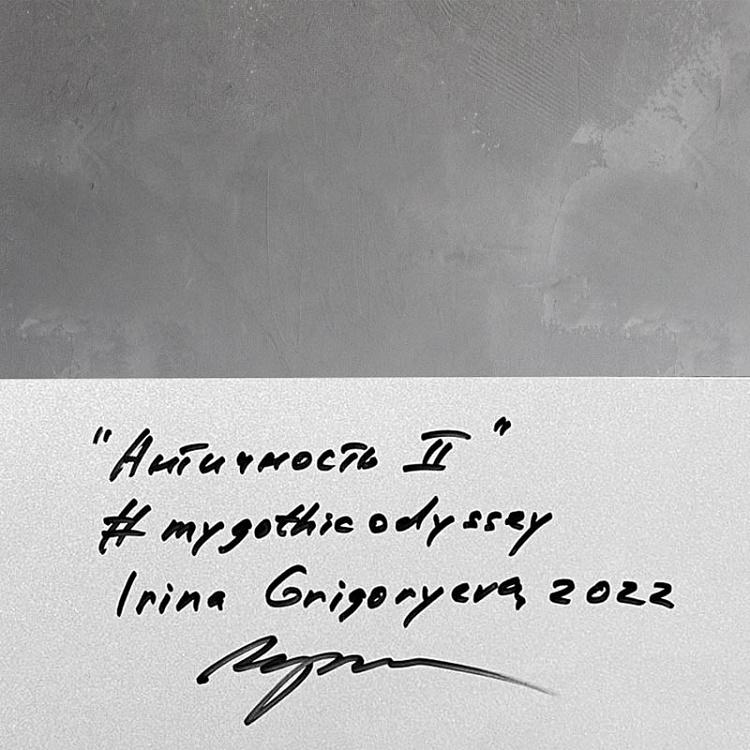 "Античность II"
# mygothic odyssey
Irina Grigoryeva, 2022